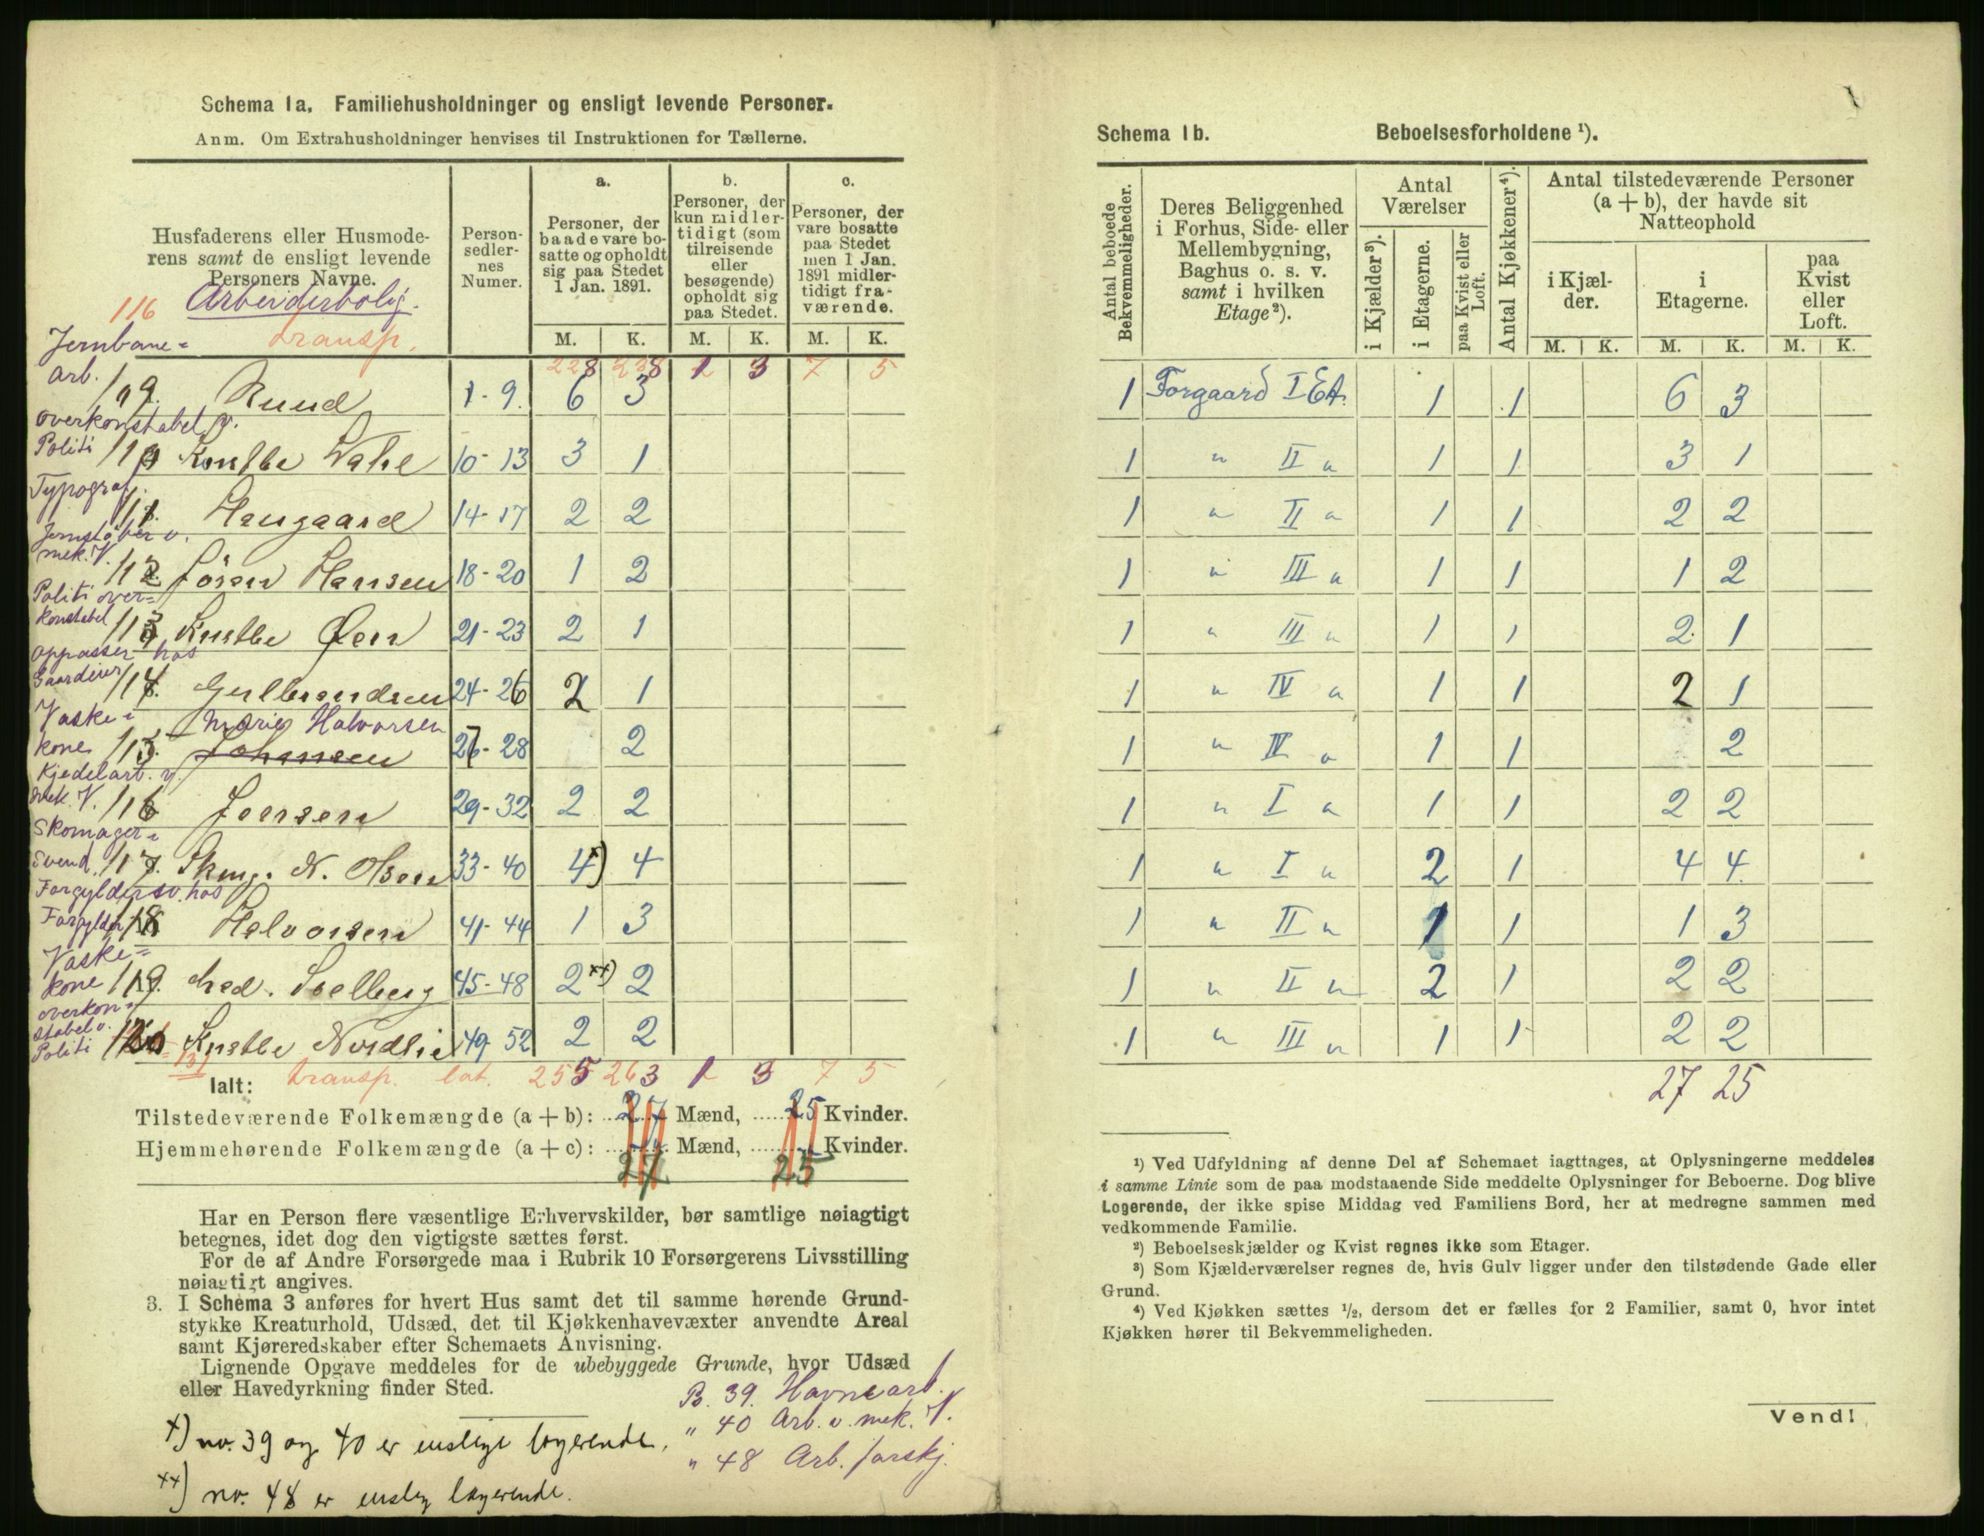 Schema 1a. Familiehusholdninger og ensligt levende Personer.
Anm. Om Extrahusholdninger henvises til Instruktionen for Tællerne.
Husfaderens eller Husmode-
rens samt de ensligt levende
Personers Navne.
Person-
sedler-
nes
Numer.
a.
Personer, der
baade vare bo-
satte og opholdt
sig paa Stedet
1 Jan. 1891.
b.
Personer, der
kun midler-
tidigt (som
tilreisende
eller
besøgende)
opholdt sig
paa Stedet.
c.
Personer, der
vare bosatte
paa Stedet
men 1 Jan.
1891 midler-
tidigt fra-
værende.
M. K. M. K. M. K.
116 Arbeiderbolig.
transp. 228 238 1 3 7 5
Jernbane=
arb. 9. Ruud 1-9. 6 3
overkonstabel v.
Politi Konstbe 10-13 3 1
Typograf. 11. Haugaard 14-17 2 2
Jernstøber v.
mek. V. 12 Jösen Hansen 18-20 1 2
Politi over=
konstabel 113 Knstbe Øen 21-23 2 1
oppasser hos
Gaardeier 114. Gulbrandsen 24-26 2 1
Vaske=
kone 115. Marie Halvorsen Johansen 27-28 2
Kjedelarb. v.
mek. V. 116 Jensen 29-32 2 2
Skomager=
svend. 117. Skmg. N. Olsen 33-40 4 x) 4
Forgyldersv. hos
Forgylder 118 Halvorsen 41-44 1 3
Vaske=
kone 119. Solberg 45-48 2 xx) 2
overkon=
stabel v.
Politi 120 Knstbe Nordlie 49-52 2 2
Ialt: transp. lat. 255 263 1 3 7 5
Tilstedeværende Folkemængde (a + b): 27 Mænd, 25 Kvinder.
Hjemmehørende Folkemængde (a + c): 27 Mænd, 25 Kvinder.
Har en Person flere væsentlige Erhvervskilder, bør samtlige nøiagtigt
betegnes, idet dog den vigtigste sættes først.
For de af Andre Forsørgede maa i Rubrik 10 Forsørgerens Livsstilling
nøiagtigt angives.
3. I Schema 3 anføres for hvert Hus samt det til samme hørende Grund-
stykke Kreaturhold, Udsæd, det til Kjøkkenhavevæxter anvendte Areal
samt Kjøreredskaber efter Schemaets Anvisning.
Lignende Opgave meddeles for de ubebyggede Grunde, hvor Udsæd
eller Havedyrkning finder Sted.
P. 39. Havnearb.
" 40 Arb. v. mek. V.
" 48 Arb. forskj.
x) no. 39 og 40 er enslige logerende.
xx) no. 48 er enslig logerende.
Schema 1b. Beboelsesforholdene ¹).
Antal beboede
Bekvemmeligheder.
Deres Beliggenhed
i Forhus, Side- eller
Mellembygning,
Baghus o. s. v.
samt i hvilken
Etage²).
Antal
Værelser
i Kjælder³).
i Etagerne.
paa Kvist eller
Loft.
Antal Kjøkkener⁴).
Antal tilstedeværende Personer
(a + b), der havde sit
Natteophold
i Kjæl-
der.
i
Etagerne.
paa
Kvist
eller
Loft.
M. K. M. K. M. K.
1 Forgaard I Et. 1 1 6 3
1 " II " 1 1 3 1
1 " II " 1 1 2 2
1 " III " 1 1 1 2
1 " III " 1 1 2 1
1 " IV " 1 1 2 1
1 " IV " 1 1 2
1 " I " 1 1 2 2
1 " I " 2 1 4 4
1 " II " 1 1 1 3
1 " II " 2 1 2 2
1 " III " 1 1 2 2
27 25
¹) Ved Udfyldning af denne Del af Schemaet iagttages, at Oplysningerne meddeles
i samme Linie som de paa modstaaende Side meddelte Oplysninger for Beboerne. Dog blive
Logerende, der ikke spise Middag ved Familiens Bord, her at medregne sammen med
vedkommende Familie.
²) Beboelseskjælder og Kvist regnes ikke som Etager.
³) Som Kjælderværelser regnes de, hvis Gulv ligger under den tilstødende Gade eller
Grund.
⁴) Ved Kjøkken sættes ½, dersom det er fælles for 2 Familier, samt 0, hvor intet
Kjøkken hører til Bekvemmeligheden.
Vend!